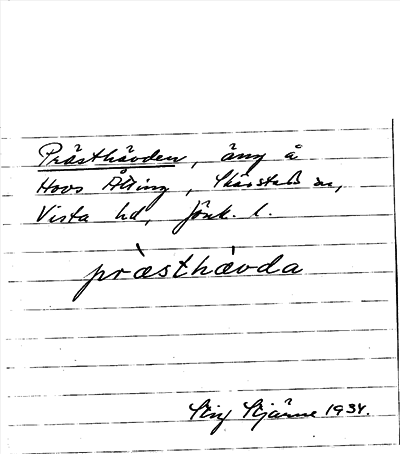 Prästhävden, äng å
Hovs Äring, Skärstads sn,
Vista hd, Jönk. l.
prὰsthὰvda
Stig Stjärne 1934.